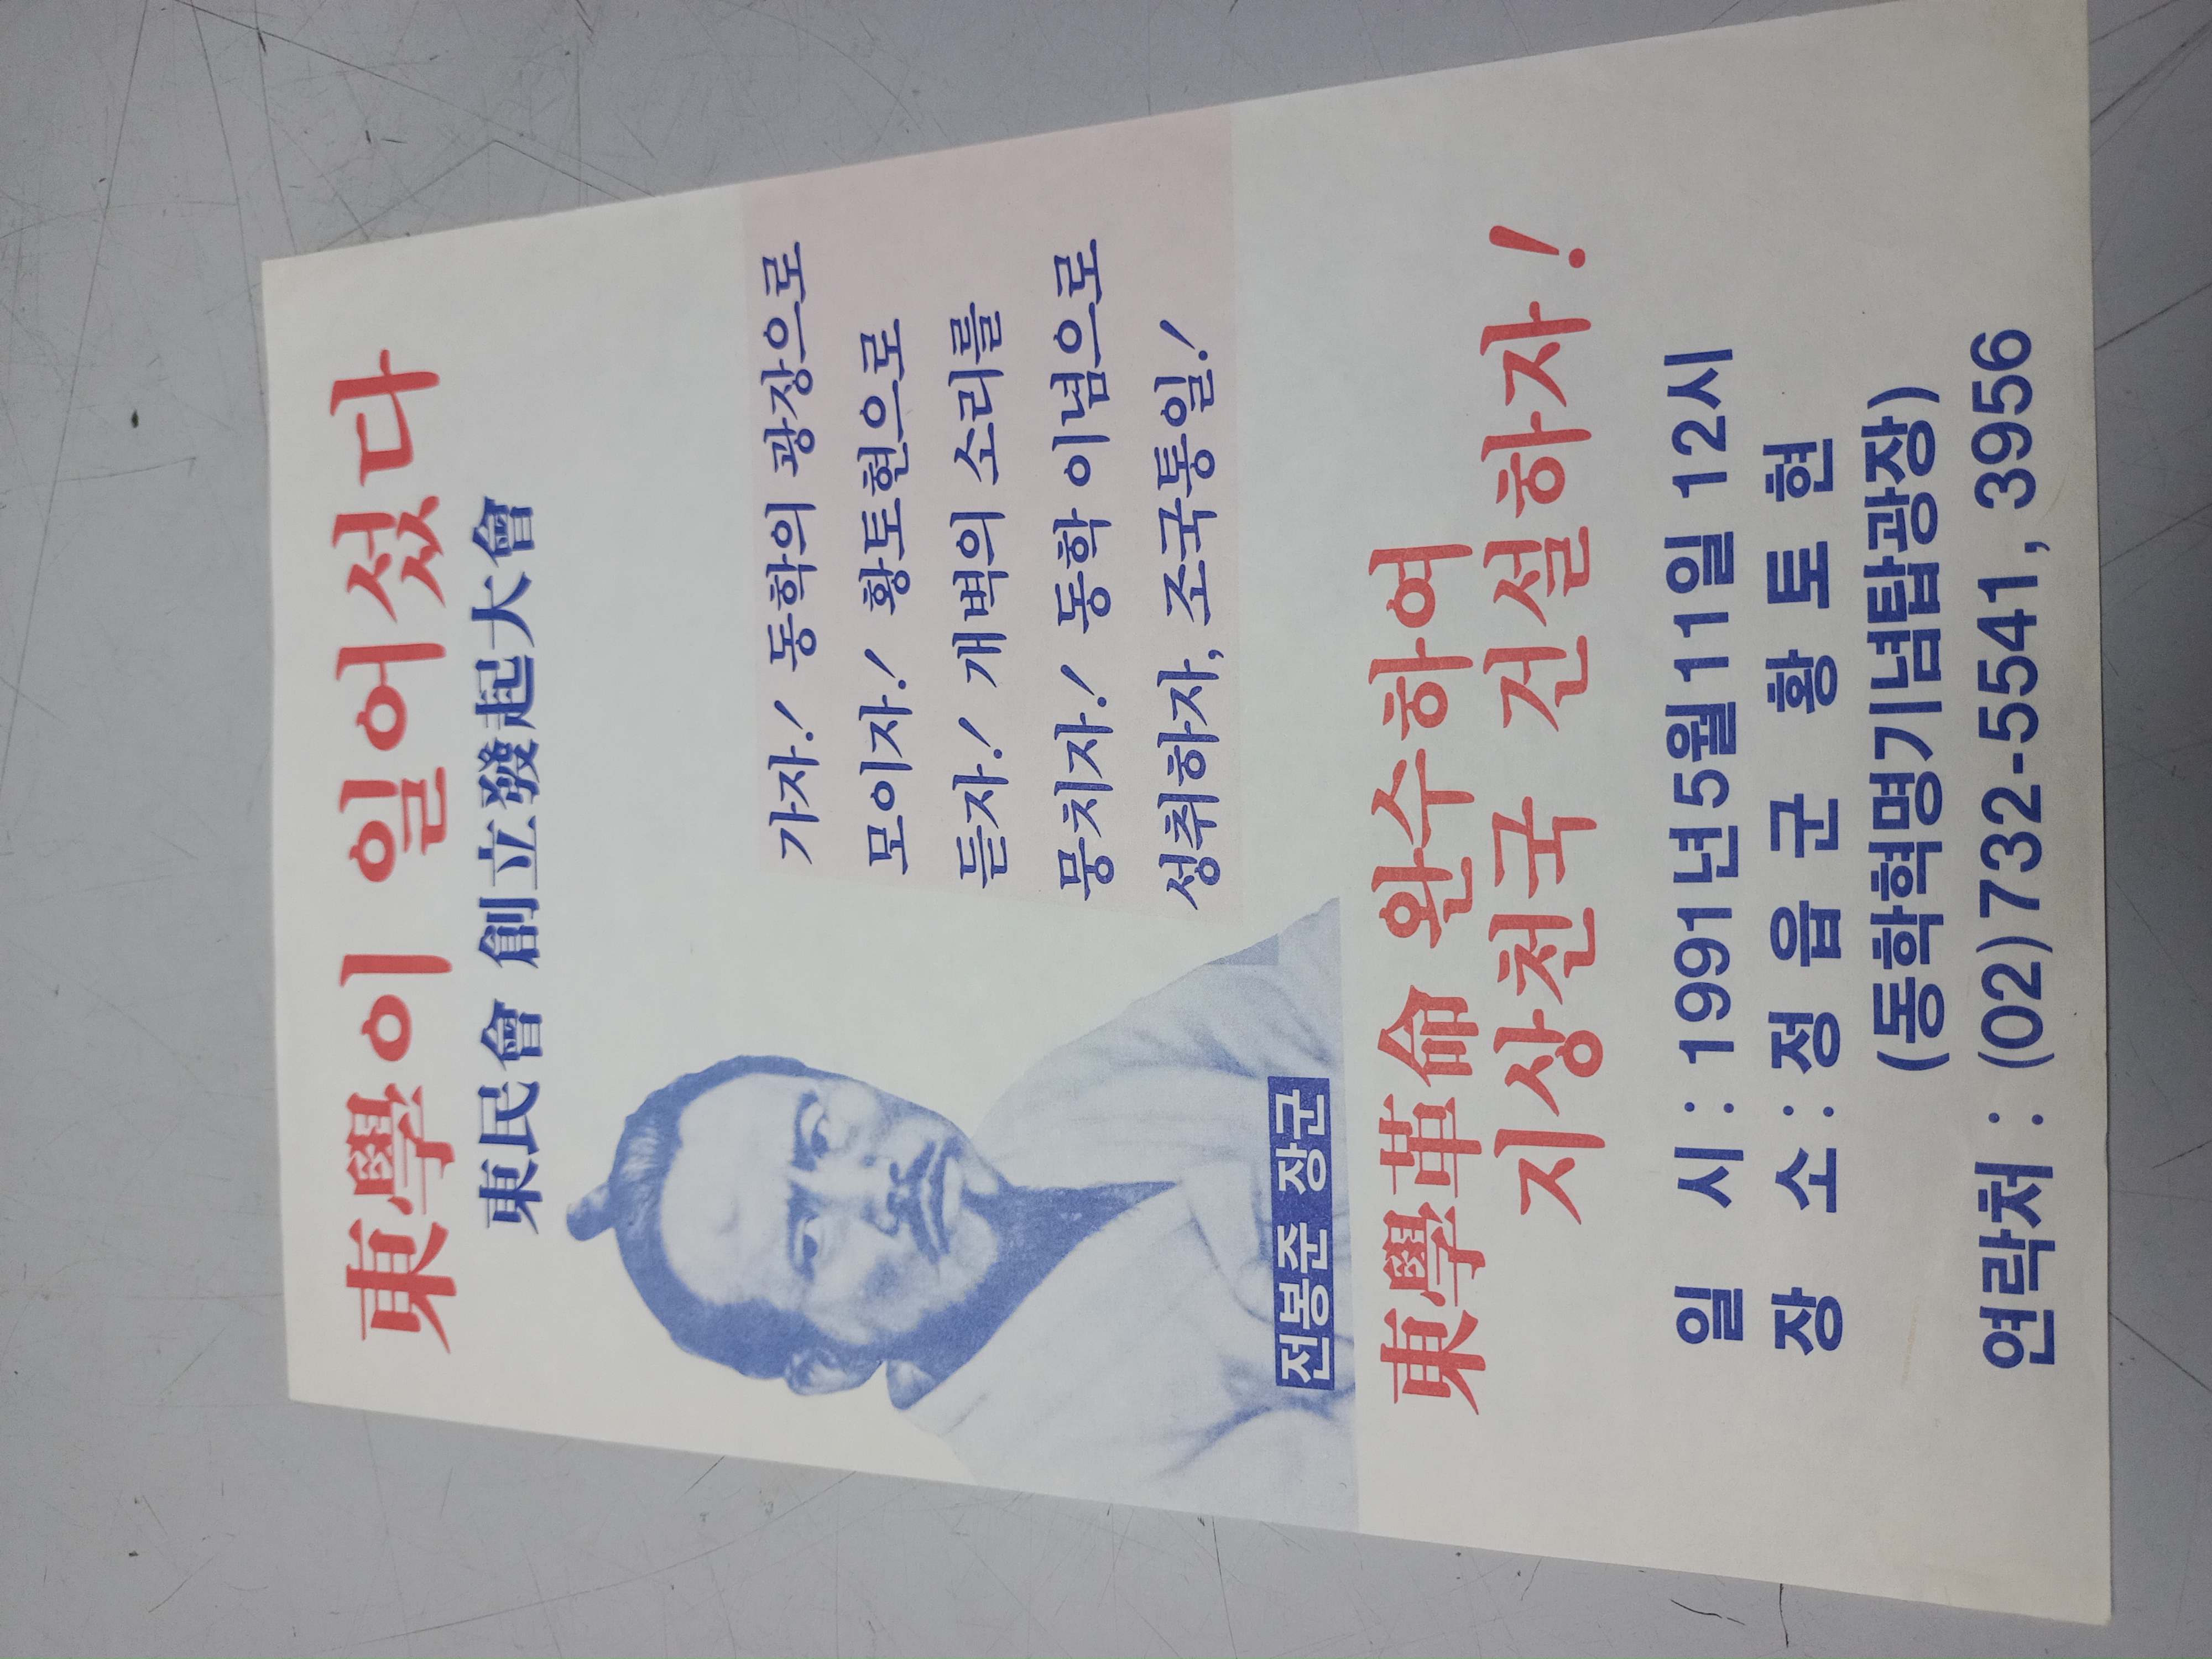 東學이 일어섰다
東民會 創立發起大會
가자! 동학의 광장으로
모이자! 황토현으로
듣자! 개벽의 소리를
뭉치자! 동학 이념으로
성취하자, 조국통일!
전봉준 장군
東學革命 완수하여
지상천국 건설하자!
일 시 : 1991년 5월 11일 12시
장 소 : 정 읍 군 황 토 현
(동학혁명기념탑광장)
연락처 : (02) 732-5541, 3956